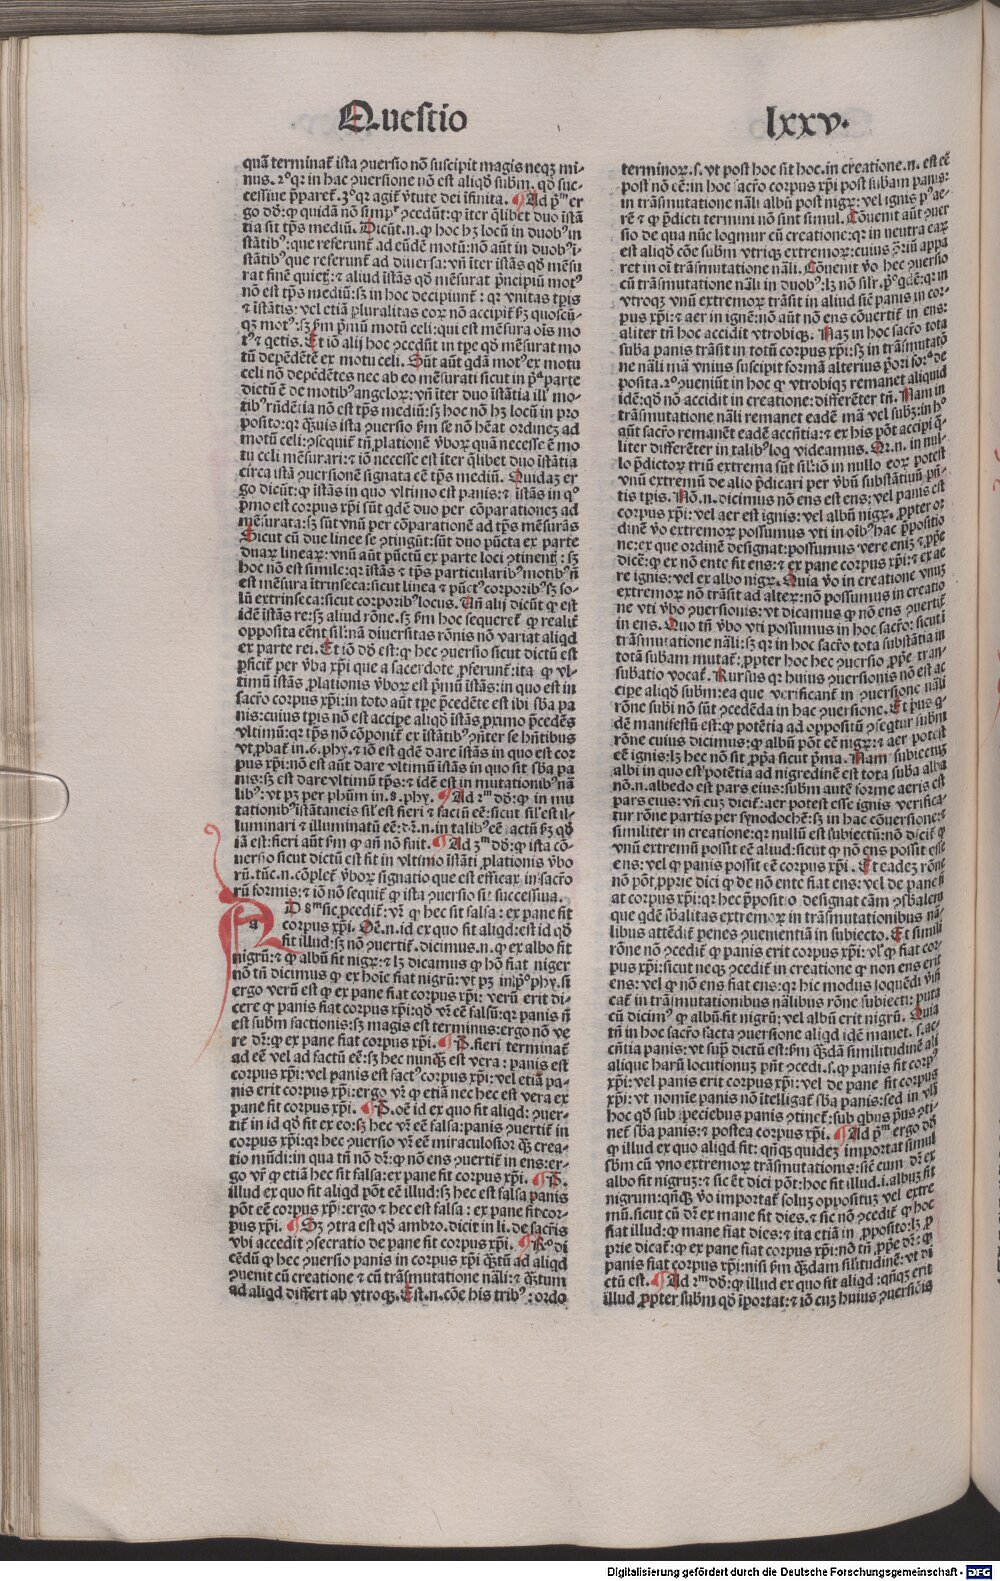 Questio lxxv.
quā terminat᷑ ista ꝯuersio nō suscipit magis neqꝫ mi-
nus. 2°qꝛ in hac ꝯuersione nō est aliqđ subm̄. qđ suc-
cessiue p̄paret᷑. 3°qꝛ agit᷑ v̓tute dei ī̄finita. ¶ Ad pᵐ er
go dđ: ꝙ quidā nō simpʳ ꝯcedūt: ꝙ īter q̄libet duo īstā
tia sit tp̄s mediū. Dicūt.n. ꝙ hoc hꝫ locū in duobꝰ in
stātibꝰ: que referunt᷑ ad eūdē motū: nō aūt in duobꝰ ī-
stātibꝰ que referunt᷑ ad diuersa: vn̄ īter istās qđ mēsu
rat finē quiet᷒: ⁊ aliud īstās qđ mēsurat p̄ncipiū motꝰ
nō est tp̄s mediū: sꝫ in hoc decipiunt᷑: qꝛ vnitas tp̄is
⁊ īstātis: vel etiā pluralitas eoꝝ nō accipit᷑ ẜm quoscū-
qꝫ motꝰ: sꝫ ẜm pͥmū motū celi: qui est mēsura oīs mo
tꝰ ⁊ qetis. Et iō alij hoc ꝯcedūt in tpe qđ mēsurat mo
tū depēdētē ex motu celi. Sūt aūt qdā motꝰ ex motu
celi nō depēdētes nec ab eo mēsurati sicut in pͣ parte
dictū ē de motibꝰ angeloꝝ: vn̄ īter duo īstātia illꝭ mo-
tibꝰ rn̄dētia nō est tp̄s mediū: sꝫ hoc nō hꝫ locū in pro
posito: qꝛ q̄uis ista ꝯuersio ẜm se nō hēat ordinez ad
motū celi: ꝯsequit᷑ tn̄ ꝓlationē v̓boꝝ quā necesse ē mo
tu celi mēsurari: ⁊ iō necesse est īter q̄libet duo īstātia
circa istā ꝯuersionē signata eē tp̄s mediū. Quidaz er
go dicūt: ꝙ īstās in quo vltimo est panis: ⁊ īstās in qͦ
pͥmo est corpus xp̄i sūt qdē duo per cōparationez ad
mēsurata: sꝫ sūt vnū per cōparationē ad tp̄s mēsurās
Sicut cū due linee se ꝯtingūt: sūt duo pūcta ex parte
duaꝝ lineaꝝ: vnū aūt pūctū ex parte loci ꝯtinent᷒: sꝫ
hoc nō est simile: qꝛ īstās ⁊ tp̄s particularibꝰ motibꝰ n̄
est mēsura ītrinseca: sicut linea ⁊ pūctꝰ corporibꝰ: sꝫ so-
lū extrinseca: sicut corporibꝰ locus. Vn̄ alij dicūt ꝙ est
idē īstās re: sꝫ aliud rōne. sꝫ ẜm hoc sequeret᷑ ꝙ realit᷑
opposita eēnt sil̓: nā diuersitas rōnis nō variat aliqd
ex parte rei. Et iō dđ est: ꝙ hec ꝯuersio sicut dictū est
ꝑficit᷑ per v̓ba xp̄i que a sacerdote ꝓferunt᷑: ita ꝙ vl-
timū īstās ꝓlationis v̓boꝝ est pͥmū īstās: in quo est in
sacr̄o corpus xp̄i: in toto aūt tpe p̄cedēte est ibi sb̄a pa
nis: cuius tp̄is nō est accipe aliqđ īstās ꝓximo p̄cedēs
vltimū: qꝛ tp̄s nō cōponit᷑ ex īstātibꝰ ꝯn̄ter se hn̄tibus
vt ꝓbat᷑ in.6. phy. ⁊ iō est qdē dare īstās in quo est cor
pus xp̄i: nō est aūt dare vltimū īstās in quo sit sb̄a pa
nis: sꝫ est dare vltimū tp̄s: ⁊ idē est in mutationibꝰ nā
libꝰ: vt pꝫ per phūm in.8. phy. ¶ Ad 2ᵐ dđ: ꝙ in mu
tationibꝰ īstātaneis sil̓ est fieri ⁊ factū eē: sicut sil̓ est il-
luminari ⁊ illuminatū eē: dr̄.n. in talibꝰ eē factū ẜm qđ
iā est: fieri aūt ẜm ꝙ an̄ nō fuit. ¶ Ad 3ᵐ dđ: ꝙ ista cō-
uersio sicut dictū est fit in vltimo īstāti ꝓlationis v̓bo
rū. tūc.n. cōplet᷑ v̓boꝝ signatio que est efficax in sacr̄o
rū formis: ⁊ iō nō sequit᷑ ꝙ ista ꝯuersio sit successiua.
a D 8ᵐ sic ꝓcedit᷑: vr̄ ꝙ hec sit falsa: ex pane fit
corpus xp̄i. Oē.n. id ex quo fit aliqd: est id qđ
fit illud: sꝫ nō ꝯuertit᷑. dicimus.n. ꝙ ex albo fit
nigrū: ⁊ ꝙ albū fit nigꝝ: ⁊ lꝫ dicamus ꝙ hō fiat niger
nō tn̄ dicimus ꝙ ex hoīe fiat nigrū: vt pꝫ in pͦ phy. si
ergo verū est ꝙ ex pane fiat corpus xp̄i: verū erit di-
cere ꝙ panis fiat corpus xp̄i: qđ vr̄ eē falsū: qꝛ panis n̄
est subm̄ factionis: sꝫ magis est terminus: ergo nō ve
re dr̄: ꝙ ex pane fiat corpus xp̄i. ¶ P. fieri terminat᷑
ad eē vel ad factū eē: sꝫ hec nunqꝫ est vera: panis est
corpus xp̄i: vel panis est factꝰ corpus xp̄i: vel etiā pa-
nis erit corpus xp̄i: ergo vr̄ ꝙ etiā nec hec est vera ex
pane fit corpus xp̄i. ¶ P. oē id ex quo fit aliqd: ꝯuer-
tit᷑ in id qđ fit ex eo: sꝫ hec vr̄ eē falsa: panis ꝯuertit᷑ in
corpus xp̄i: qꝛ hec ꝯuersio vr̄ eē miraculosior q̄ꝫ crea-
tio mūdi: in qua tn̄ nō dr̄: ꝙ nō ens ꝯuertit᷑ in ens: er-
go vr̄ ꝙ etiā hec sit falsa: ex pane fit corpus xp̄i. ¶ P.
illud ex quo fit aliqd pōt eē illud: sꝫ hec est falsa panis
pōt eē corpus xp̄i: ergo ⁊ hec est falsa: ex pane fit cor-
pus xp̄i. ¶ Sꝫ ꝯtra est qđ ambro. dicit in li. de sacr̄is
vbi accedit ꝯsecratio de pane fit corpus xp̄i. ¶ Rͦ di
cēdū ꝙ hec ꝯuersio panis in corpus xp̄i q̄ꝫtū ad aliqd
ꝯuenit cū creatione ⁊ cū trāsmutatione nāli: ⁊ q̄ꝫtum
ad aliqd differt ab vtroqꝫ. Est.n. cōe his tribꝰ: ordo
terminoꝝ.s. vt post hoc sit hoc. in creatione.n. est eē
post nō eē: in hoc sacr̄o corpus xp̄i post subam panis:
in trāsmutatione nāli albū post nigꝝ: vel ignis pꝰ ae-
rē ⁊ ꝙ p̄dicti termini nō sint simul. Cōuenit aūt ꝯuer
sio de qua nūc loqmur cū creatione: qꝛ in neutra eaꝝ
est aliqđ cōe subm̄ vtriqꝫ extremoꝝ: cuius ꝯ̄riū appa
ret in oī trāsmutatione nāli. Cōuenit v̓o hec ꝯuersio
cū trāsmutatione nāli in duobꝰ: lꝫ nō sil̓r. pͦ qdē: qꝛ in
vtroqꝫ vnū extremoꝝ trāsit in aliud sic̄ panis in cor-
pus xp̄i: ⁊ aer in ignē: nō aūt nō ens cōuertit᷑ in ens:
aliter tn̄ hoc accidit vtrobiqꝫ. Naꝫ in hoc sacr̄o tota
suba panis trāsit in totū corpus xp̄i: sꝫ in trāsmutatō
ne nāli mā vnius suscipit formā alterius pͥori forͣ de
posita. 2°ꝯueniūt in hoc ꝙ vtrobiqꝫ remanet aliquid
idē: qđ nō accidit in creatione: differēter tn̄. Nam in
trāsmutatione nāli remanet eadē mā vel subꝫ: in hͦ
aūt sacr̄o remanēt eadē accn̄tia: ⁊ ex his pōt accipi q̄-
liter differēter in talibꝰ loq̄ videamus. Qꝛ.n. in nul-
lo p̄dictoꝝ triū extrema sūt sil̓: iō in nullo eoꝝ potest
vnū extremū de alio p̄dicari per v̓bū substātiuū pn̄-
tis tp̄is. Nō.n. dicimus nō ens est ens: vel panis est
corpus xp̄i: vel aer est ignis: vel albū nigꝝ. ꝓpter or
dinē v̓o extremoꝝ possumus vti in oībꝰ hac p̄positio
ne: ex que ordinē designat: possumus vere eniꝫ ⁊ ꝓpͥe
dicē: ꝙ ex nō ente fit ens: ⁊ ex pane corpus xp̄i: ⁊ ex ae
re ignis: vel ex albo nigꝝ. Quia v̓o in creatione vnuꝫ
extremoꝝ nō trāsit ad alteꝝ: nō possumus in creatio
ne vti v̓bo ꝯuersionis: vt dicamus ꝙ nō ens ꝯuertit᷑
in ens. Quo tn̄ v̓bo vti possumus in hoc sacr̄o: sicut ī
trāsmutatione nāli: sꝫ qꝛ in hoc sacr̄o tota substātia in
totā subam mutat᷑: ꝓpter hoc hec ꝯuersio ꝓpͥe tran-
subatio vocat᷑. Rursus qꝛ huius ꝯuersionis nō est ac
cipe aliqđ subm̄: ea que verificant᷑ in ꝯuersione nāli
rōne subi nō sūt ꝯcedēda in hac ꝯuersione. Et pͥus q̄-
dē manifestū est: ꝙ potētia ad oppositū ꝯseqtur subm̄
rōne cuius dicimus: ꝙ albū pōt eē nigꝝ: ⁊ aer potest
eē ignis: lꝫ hec nō sit ꝓpͥa sicut pͥma. Nam subiectuꝫ
albi in quo est potētia ad nigredinē est tota suba alba
nō.n. albedo est pars eius: subm̄ autē forme aeris est
pars eius: vn̄ cuꝫ dicit᷑: aer potest esse ignis verifica-
tur rōne partis per synodochē: sꝫ in hac cōuersione: ⁊
similiter in creatione: qꝛ nullū est subiectū: nō dicit᷑ ꝙ
vnū extremū possit eē aliud: sicut ꝙ nō ens possit esse
ens: vel ꝙ panis possit eē corpus xp̄i. Et eadeꝫ rōne
nō pōt ꝓprie dici ꝙ de nō ente fiat ens: vel de pane fi
at corpus xp̄i: qꝛ hec p̄positio designat cām ꝯsb̄alem
que qdē sb̄alitas extremoꝝ in trāsmutationibus nā-
libus attēdit᷑ penes ꝯuenientiā in subiecto. Et simili
rōne nō ꝯcedit᷑ ꝙ panis erit corpus xp̄i: vl̓ ꝙ fiat cor-
pus xp̄i: sicut neqꝫ ꝯcedit᷑ in creatione ꝙ non ens erit
ens: vel ꝙ nō ens fiat ens: qꝛ hic modus loquēdi v̓ifi
cat᷑ in trāsmutationibus nālibus rōne subiecti: puta
cū dicimꝰ ꝙ albū fit nigrū: vel albū erit nigrū. Quia
tn̄ in hoc sacr̄o facta ꝯuersione aliqd idē manet.s. ac-
cn̄tia panis: vt supͣ dictū est: ẜm q̄ꝫdā similitudinē ali
alique harū locutionuꝫ pn̄t ꝯcedi.s. ꝙ panis fit corpꝰ
xp̄i: vel panis erit corpus xp̄i: vel de pane fit corpus
xp̄i: vt nomīe panis nō ītelligat᷑ sb̄a panis: sed in vl̓i
hoc qđ sub speciebus panis ꝯtinet᷑: sub qbus pͥus ꝯti-
net᷑ sb̄a panis: ⁊ postea corpus xp̄i. ¶ Ad pᵐ ergo dđ
ꝙ illud ex quo aliqd fit: qn̄qꝫ quideꝫ importat simul
sb̄m cū vno extremoꝝ trāsmutationis: sic̄ cum dr̄ ex
albo fit nigruꝫ: ⁊ sic ēt dici pōt: hoc fit illud.i. albuꝫ fit
nigrum: qn̄qꝫ v̓o importat᷑ soluꝫ oppositum vel extre
mū. sicut cū dr̄ ex mane fit dies. ⁊ sic nō ꝯcedit᷑ ꝙ hoc
fiat illud: ꝙ mane fiat dies: ⁊ ita etiā in ꝓposito: lꝫ ꝓ
prie dicat᷑: ꝙ ex pane fiat corpus xp̄i: nō tn̄ ꝓpͥe dr̄: ꝙ
panis fiat corpus xp̄i: nisi ẜm q̄ꝫdam sil̓itudinē: vt di
ctū est. ¶ Ad 2ᵐ dđ: ꝙ illud ex quo fit aliqd: qn̄qꝫ erit
illud ꝓpter subm̄ qđ īportat᷑: ⁊ iō cuꝫ huius ꝯuersiōis
Digitalisierung gefördert durch die Deutsche Forschungsgemeinschaft - DFG